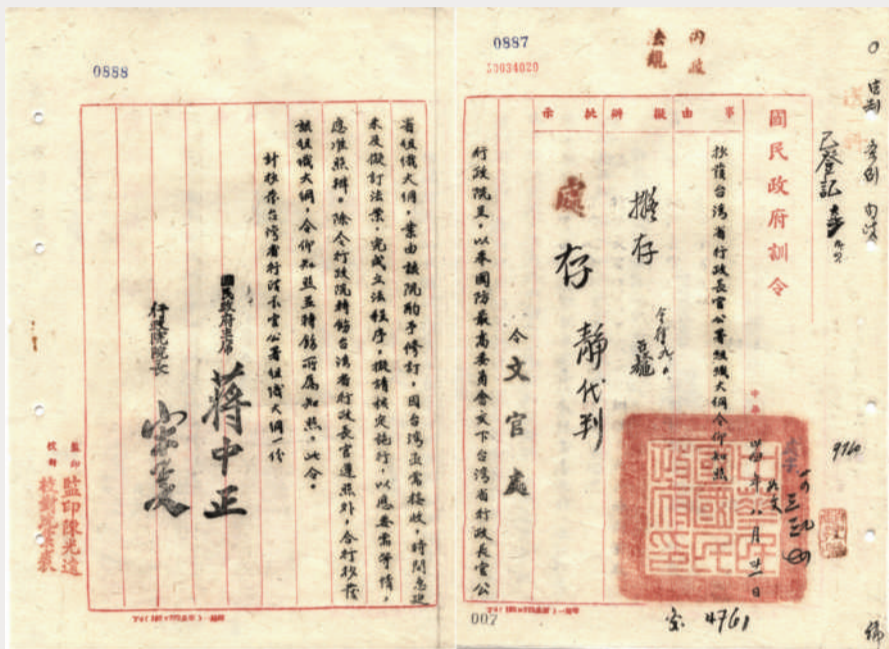 0887
30034020
內政
法規
已登記
國民政府訓令
事由
擬辦
批示
抄發台灣省行政長官公署組織大綱令仰知照
擬存
處存
靜代判
令文官處
行政院呈，以奉國防最高委員會交下台灣省行政長官公
中華民國政府印
年八月廿一日
9760
4761
號
007
0888
省組織大綱，業由該院酌予修訂，因台灣亟需接收，時間急迫
未及擬訂法案，完成立法程序，擬請核定施行，以應要需等情，
應准照辦。除令行政院轉飭台灣省行政長官遵照外，合行抄發
該組織大綱，令仰知照並轉飭所屬知照。此令。
計抄發台灣省行政長官公署組織大綱一份
國民政府主席 蔣中正
行政院院長 宋子文
監印
監印陳光遠
校對